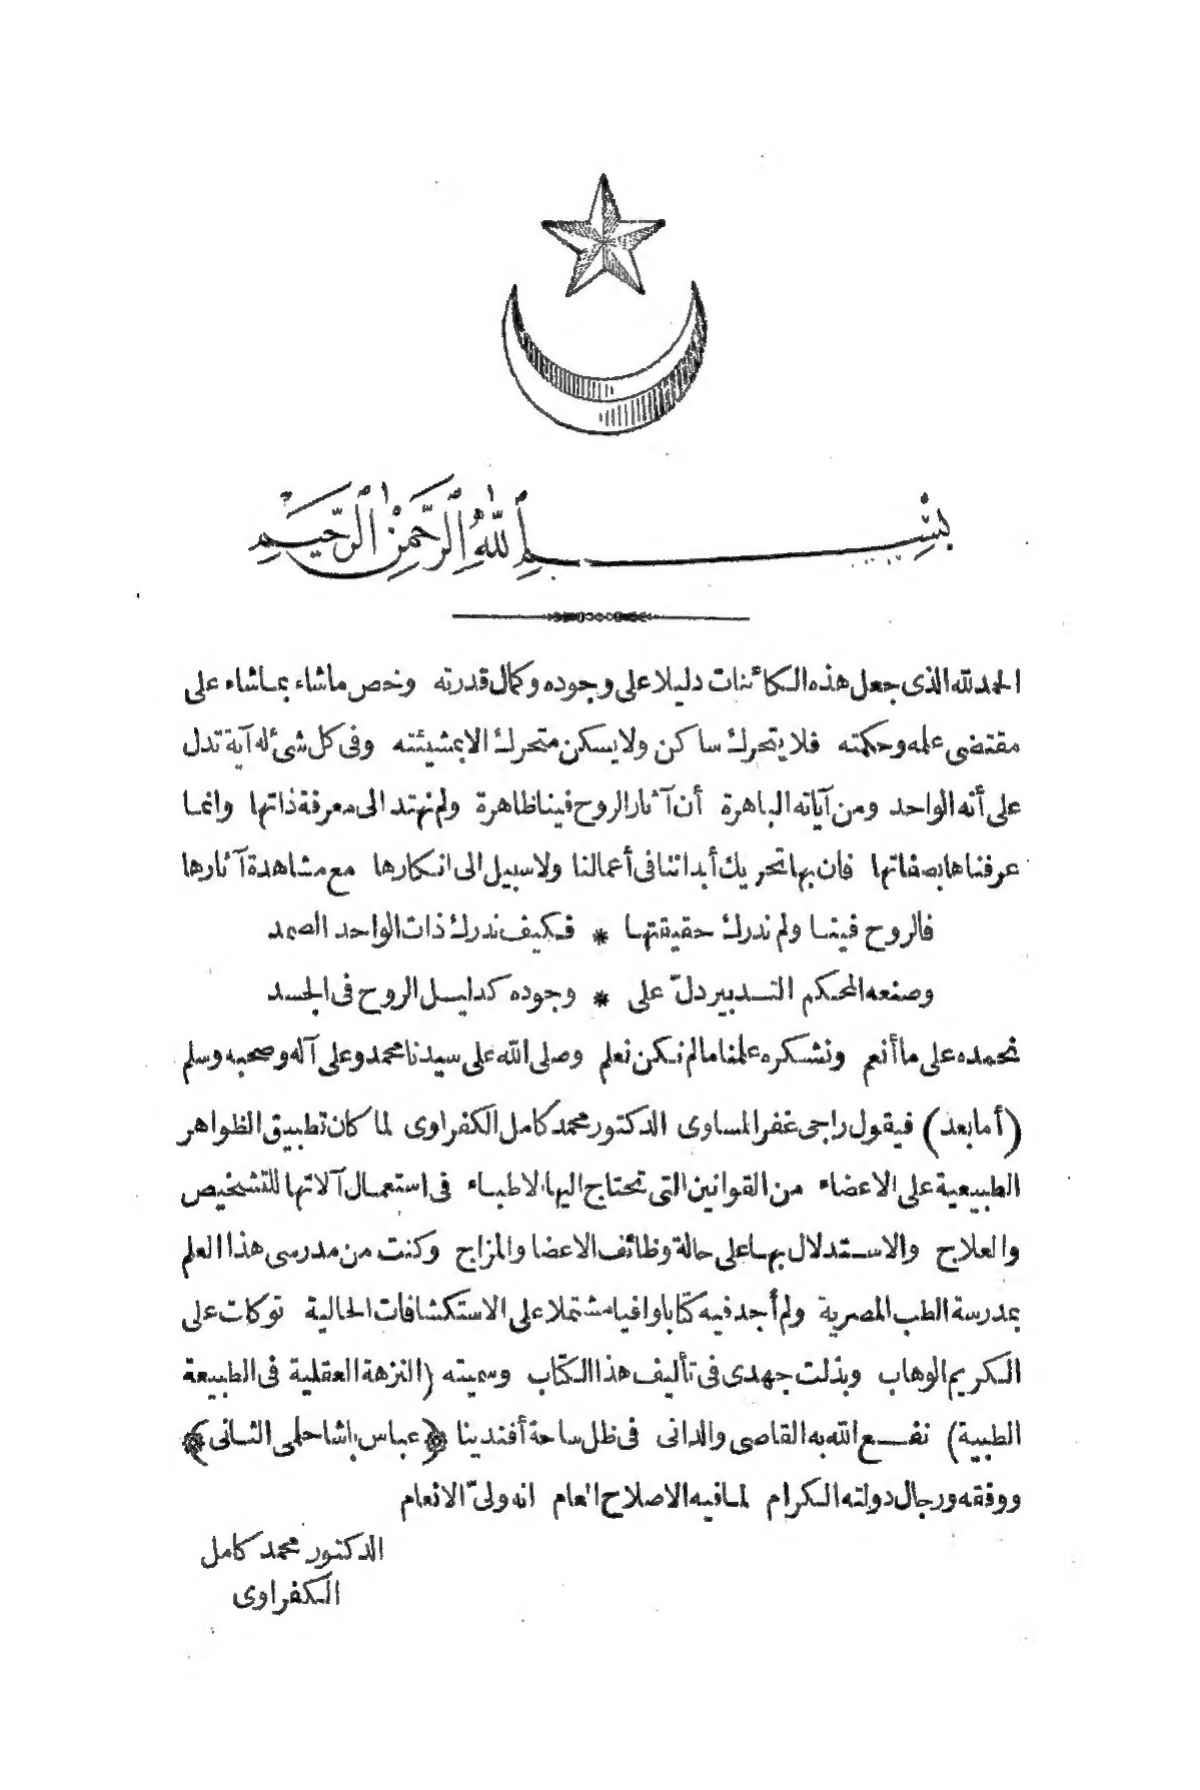 بِسْمِ اللّٰهِ الرَّحْمٰنِ الرَّحِيمِ
الحمد لله الذى جعل هذه الكائنات دليلا على وجوده وكمال قدرته وخص ماشاء بماشاء على
مقتضى علمه وحكمته فلا يتحرك ساكن ولا يسكن متحرك الا بمشيئته وفى كل شئ له آية تدل
على أنه الواحد ومن آياته الباهرة أن آثار الروح فينا ظاهرة ولم نهتد الى معرفة ذاتها وانما
عرفناها بصفاتها فان بها تحريك أبداننا فى أعمالنا ولا سبيل الى انكارها مع مشاهدة آثارها
فالروح فينا ولم ندرك حقيقتها * فكيف ندرك ذات الواحد الصمد
وصنعه المحكم التدبير دلّ على * وجوده كدليل الروح فى الجسد
نحمده على ما أنعم ونشكره علمنا مالم نكن نعلم وصلى الله على سيدنا محمد وعلى آله وصحبه وسلم
(أما بعد) فيقول راجى غفر المساوى الدكتور محمد كامل الكفراوى لما كان تطبيق الظواهر
الطبيعية على الاعضاء من القوانين التى تحتاج اليها الاطباء فى استعمال آلاتها للتشخيص
والعلاج والاستدلال بها على حالة وظائف الاعضا والمزاج وكنت من مدرسى هذا العلم
بمدرسة الطب المصرية ولم أجد فيه كتابا وافيا مشتملا على الاستكشافات الحالية توكلت على
الكريم الوهاب وبذلت جهدى فى تأليف هذا الكتاب وسميته (النزهة العقلية فى الطبيعة
الطبية) نفع الله به القاصى والدانى فى ظل ساحة أفندينا ﴿عباس باشا حلمى الثانى﴾
ووفقه ورجال دولته الكرام لما فيه الاصلاح العام انه ولىّ الانعام
الدكتور محمد كامل
الكفراوى